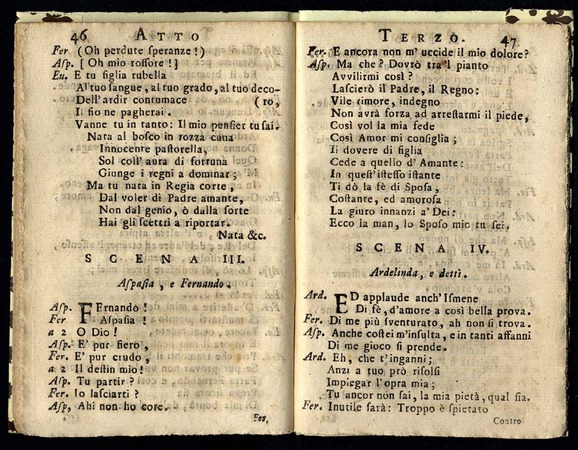 46 ATTO
Fer (Oh perdute speranze!)
Asp. [Oh mio rossore!]
Eu. E tu figlia rubella
Al tuo sangue, al tuo grado, al tuo deco-
Dell'ardir contumace (ro,
Il fio ne pagherai.
Vanne tu in tanto: Il mio pensier tu sai.
Nata al bosco in rozza cuna
Innocente pastorella,
Sol coll'aura di fortuna
Giunge i regni a dominar;
Ma tu nata in Regia corte,
Dal voler di Padre amante,
Non dal genio, ò dalla sorte
Hai gli scettri a riportar.
Nata &c.
SCENA III.
Aspasia, e Fernando.
Asp. FErnando!
Fer Aspasia!
a 2 O Dio!
Asp. E' pur fiero,
Fer. E' pur crudo,
a 2 Il destin mio!
Asp. Tu parti?
Fer. Io lasciarti?
Asp, Ahi non ho core.
Fer.
TERZO. 47
Fer. E ancora non m'uccide il mio dolore?
Asp. Ma che? Dovrò tra'l pianto
Avvilirmi così?
Lascierò il Padre, il Regno:
Vile timore, indegno
Non avrà forza ad arrestarmi il piede,
Così vol la mia fede
Così Amor mi consiglia;
Il dovere di figlia
Cede a quello d'Amante:
In quest'istesso istante
Ti dò la fè di Sposa,
Costante, ed amorosa
La giuro innanzi a' Dei:
Ecco la man, lo Sposo mio tu sei.
SCENA IV.
Ardelinda, e detti.
Ard. ED applaude anch'Ismene
Di fè, d'amore a così bella prova.
Fer. Di me più sventurato, ah non si trova.
Asp. Anche costei m'insulta, e in tanti affanni
Di me gioco si prende.
Ard. Eh, che t'inganni;
Anzi a tuo prò risolsi
Impiegar l'opra mia;
Tu ancor non sai, la mia pietà, qual sia.
Fer. Inutile sarà: Troppo è spietato
Contro